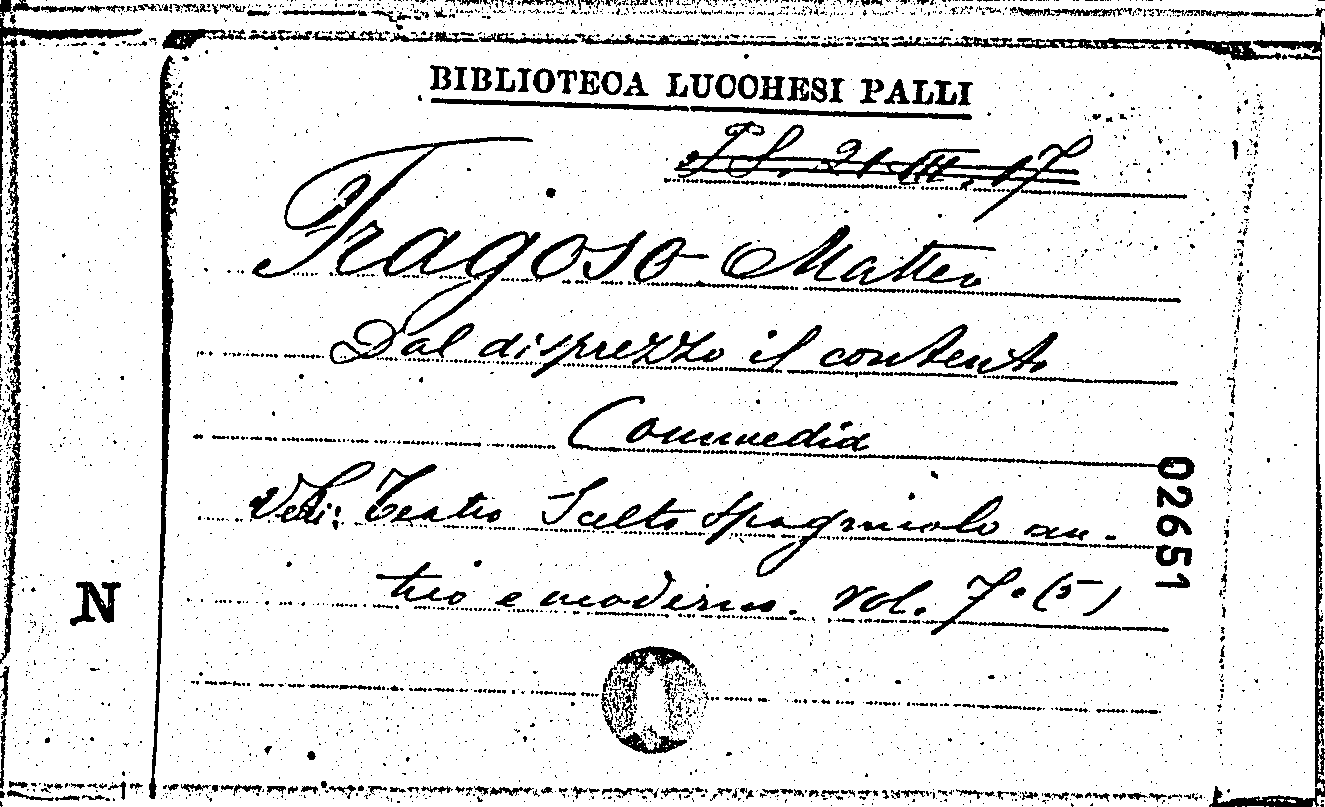 BIBLIOTECA LUCCHESI PALLI
P.S. 21 III. 17
Fragoso Matteo
Dal disprezzo il contento
Commedia
Vedi: Teatro Scelto Spagnuolo an-
tico e moderno. vol. 7° (5)
02651
N